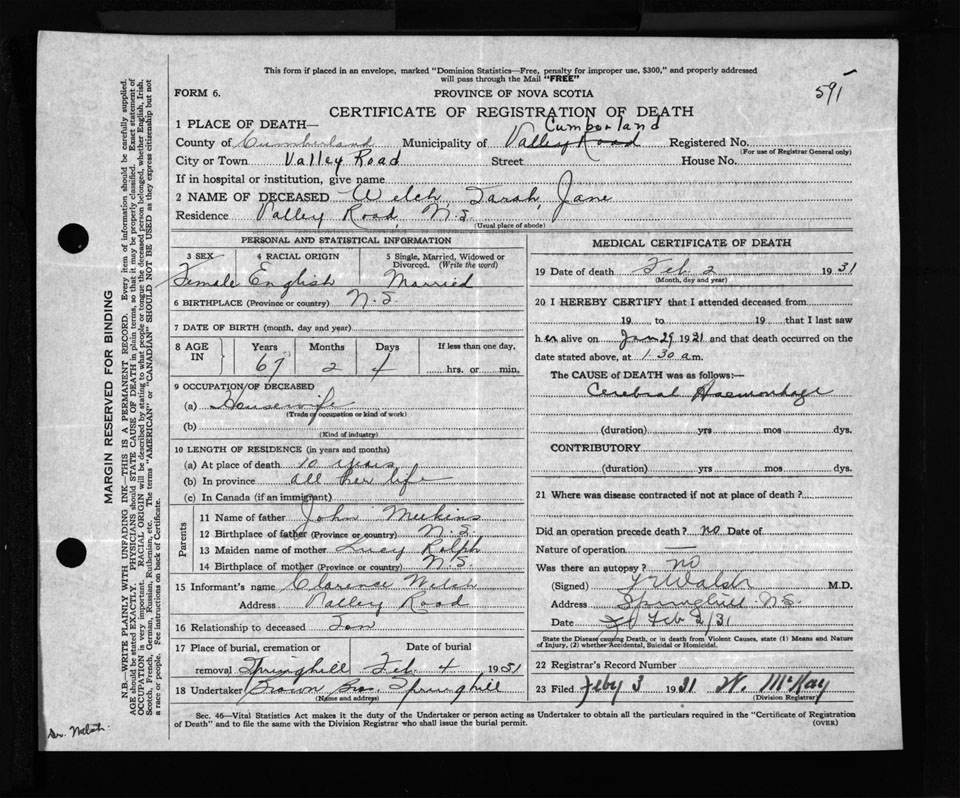 This form if placed in an envelope, marked "Dominion Statistics—Free, penalty for improper use, $300," and properly addressed
will pass through the Mail "FREE"
FORM 6. PROVINCE OF NOVA SCOTIA 591
CERTIFICATE OF REGISTRATION OF DEATH
1 PLACE OF DEATH— Cumberland
County of Cumberland Municipality of Valley Road Registered No.
(For use of Registrar General only)
City or Town Valley Road Street House No.
If in hospital or institution, give name
2 NAME OF DECEASED Welch, Sarah, Jane
Residence Valley Road, N.S.
(Usual place of abode)
PERSONAL AND STATISTICAL INFORMATION
3 SEX 4 RACIAL ORIGIN 5 Single, Married, Widowed or
Divorced. (Write the word)
Female English Married
6 BIRTHPLACE (Province or country) N.S.
7 DATE OF BIRTH (month, day and year)
8 AGE IN Years Months Days If less than one day,
67 2 4 hrs. or min.
9 OCCUPATION OF DECEASED
(a) Housewife
(Trade or occupation or kind of work)
(b)
(Kind of industry)
10 LENGTH OF RESIDENCE (in years and months)
(a) At place of death 10 years
(b) In province all her life
(c) In Canada (if an immigrant)
Parents
11 Name of father John Meekins
12 Birthplace of father (Province or country) N.S.
13 Maiden name of mother Lucy Rolph
14 Birthplace of mother (Province or country) N.S.
15 Informant's name Clarence Welch
Address Valley Road
16 Relationship to deceased Son
17 Place of burial, cremation or Date of burial
removal Springhill Feb. 4 1931
18 Undertaker Brown Bros. Springhill
(Name and address)
MEDICAL CERTIFICATE OF DEATH
19 Date of death Feb 2 1931
(Month, day and year)
20 I HEREBY CERTIFY that I attended deceased from
19 to 19 that I last saw
h er alive on Jan 29 1931 and that death occurred on the
date stated above, at 1.30 a.m.
The CAUSE OF DEATH was as follows:—
Cerebral Haemorrhage
(duration) yrs mos dys.
CONTRIBUTORY
(duration) yrs mos dys.
21 Where was disease contracted if not at place of death?
Did an operation precede death? no Date of
Nature of operation —
Was there an autopsy? no
(Signed) Walsh M.D.
Address Springhill N.S.
Date Feb 2/31
State the Disease causing Death, or in death from Violent Causes, state (1) Means and Nature
of Injury, (2) whether Accidental, Suicidal or Homicidal.
22 Registrar's Record Number
23 Filed Feby 3 1931 W. McKay
(Division Registrar)
Sec. 46—Vital Statistics Act makes it the duty of the Undertaker or person acting as Undertaker to obtain all the particulars required in the "Certificate of Registration
of Death" and to file the same with the Division Registrar who shall issue the burial permit. (OVER)
MARGIN RESERVED FOR BINDING
N.B.—WRITE PLAINLY WITH UNFADING INK—THIS IS A PERMANENT RECORD. Every item of information should be carefully supplied.
AGE should be stated EXACTLY. PHYSICIANS should STATE CAUSE OF DEATH in plain terms, so that it may be properly classified. Exact statement of
OCCUPATION is very important. RACIAL ORIGIN will be described by stating to what people or tongue the deceased person belonged, whether English, Irish,
Scotch, French, German, Russian, Ruthenian, etc. The terms "AMERICAN" or "CANADIAN" SHOULD NOT BE USED as they express citizenship but not
a race or people. See instructions on back of Certificate.
Dr. Walsh.